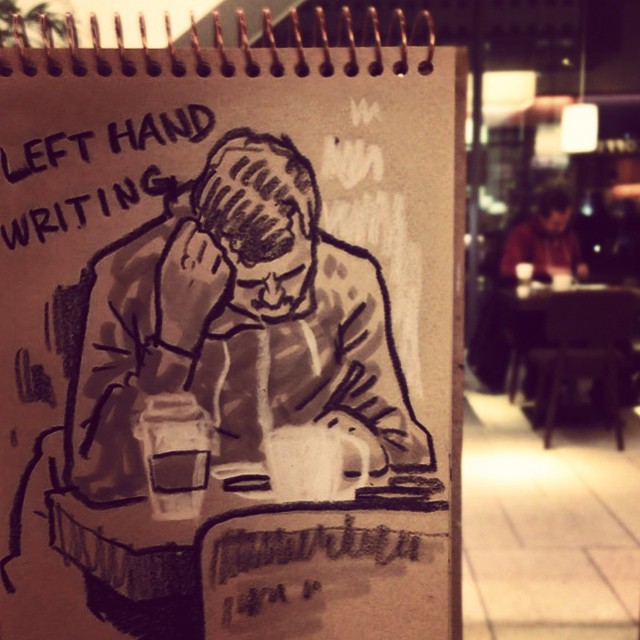 LEFT HAND
WRITING